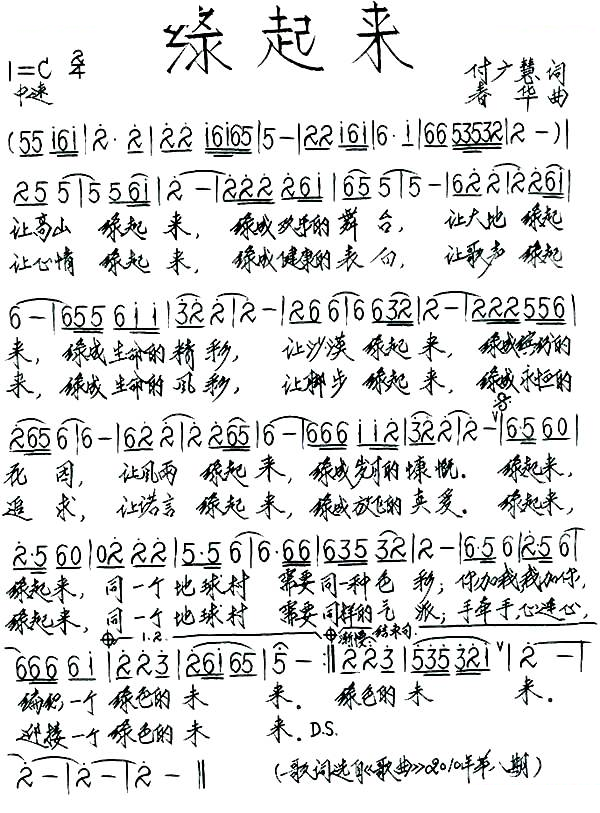 绿起来
1=C 2/4
中速
付广慧 词
春华 曲
(55 i6i|2·2|22 i6i65|5-|22 i6i|6·i|66 53532|2-)|
25 5|5 56i|2-|222 26i|65 5|5-|622|226i|
让高山 绿起 来, 绿成欢乐的 舞 台, 让大地 绿起
让心情 绿起 来, 绿成健康的 表 白, 让歌声 绿起
6-|655 6ii|322|2-|266|6632|2-|222 556|
来, 绿成生命的 精 彩, 让沙漠 绿起 来, 绿成缤纷的
来, 绿成生命的 风 彩, 让脚步 绿起 来, 绿成永恒的
265 6|6-|622|2265|6-|666 ii2|322|2-|6·5 60|
花 园, 让风雨 绿起 来, 的慷慨. 绿起来,
追 求, 让诺言 绿起 来, 绿成放飞的 真 爱. 绿起来,
2·5 60|02 22|5·5 6|6·66|635 32|2-|6·5 6|2·5 6|
绿起来, 同一个 地球村 需要 同一种色 彩; 你加我我加你,
绿起来, 同一个 地球村 需要 同样的气 派; 手牵手,心连心,
1.2. 渐慢 结束句
666 6i|223|26i65|5-:‖223|535321|2-|
编织一个 绿色的 未 来. 绿色的 未 来.
迎接一个 绿色的 未 来. D.S.
2-|2-|2-‖
(歌词选自《歌曲》2010年第八期)